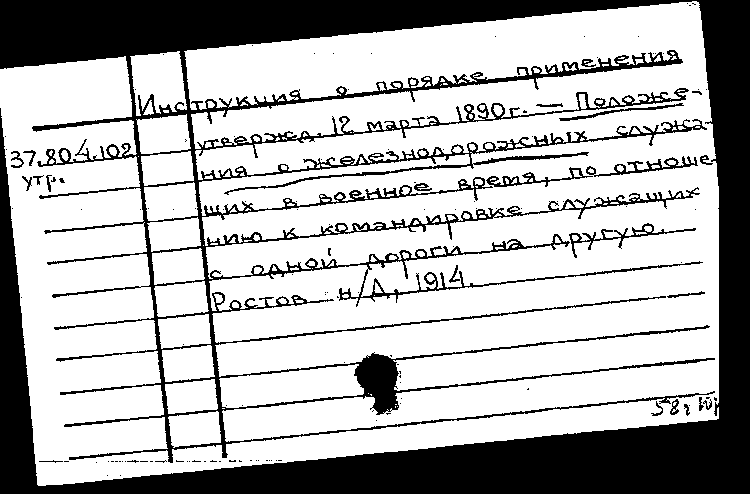 Инструкция о порядке применения
37.804.102 утвержд. 12 марта 1890 г. — Положе-
утр. ния о железнодорожных служа-
щих в военное время, по отноше-
нию к командировке служащих
с одной дороги на другую.
Ростов н/Д, 1914.